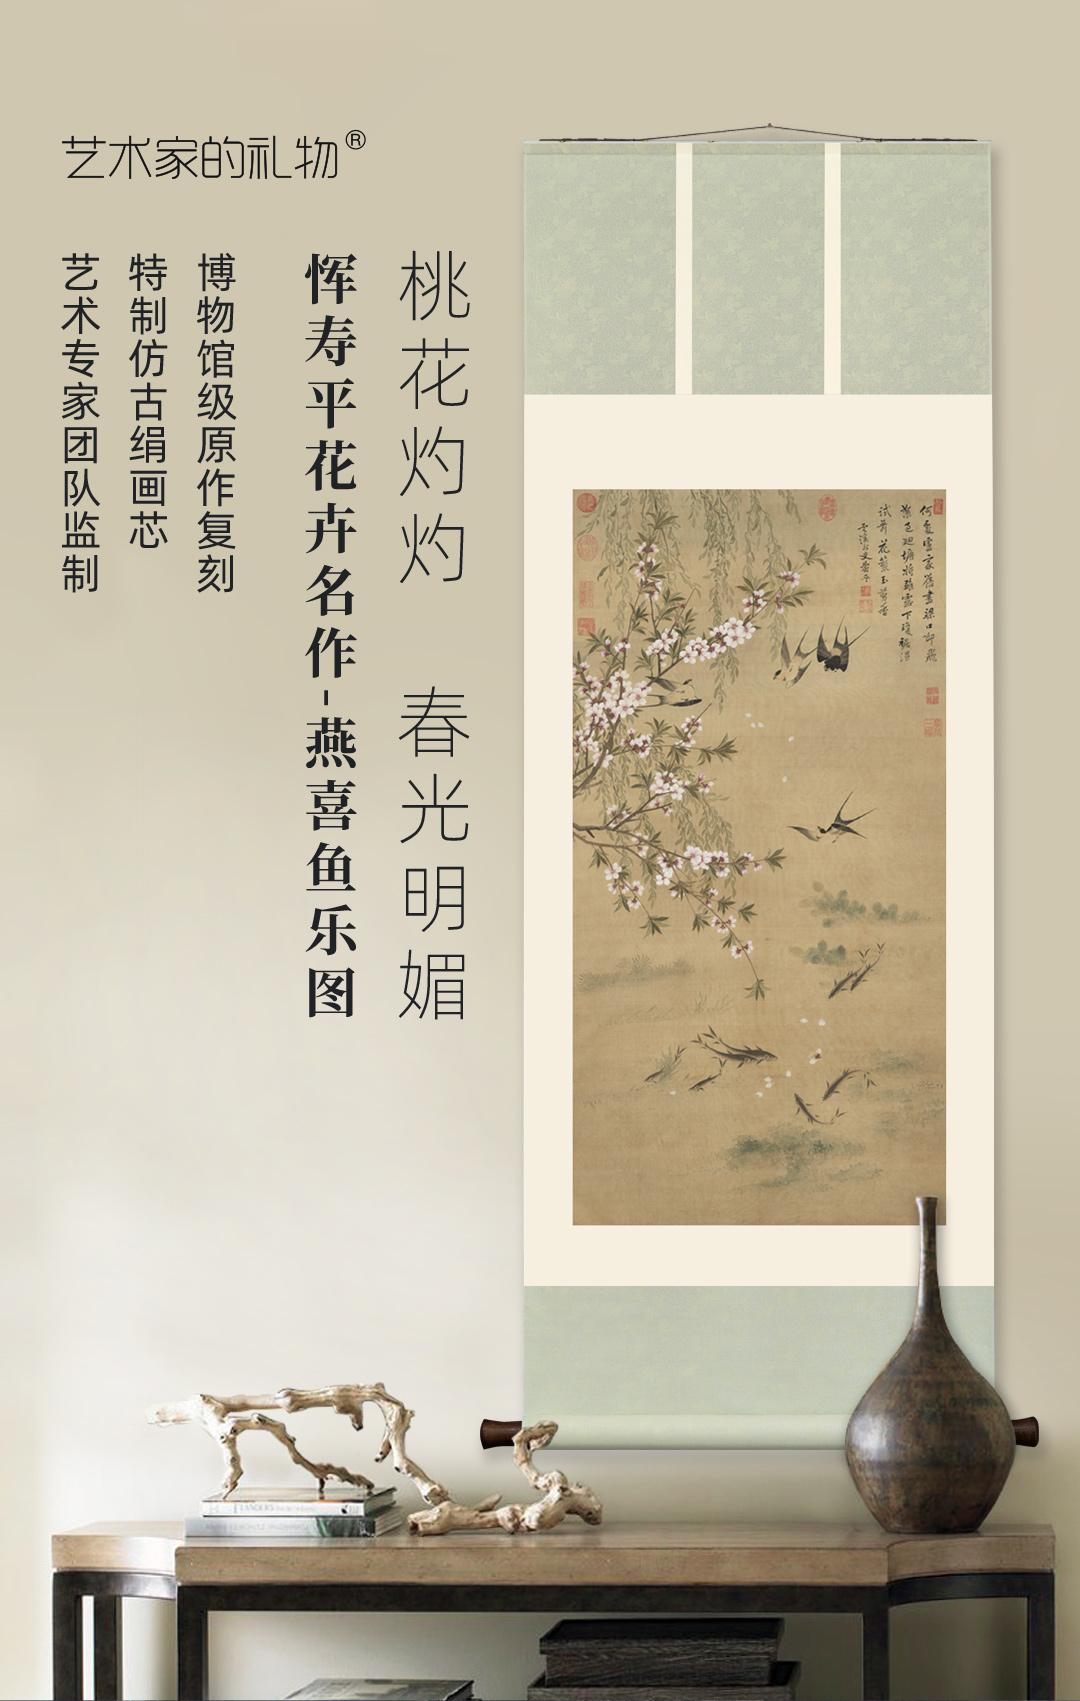 艺术家的礼物®
桃花灼灼 春光明媚
恽寿平花卉名作-燕喜鱼乐图
博物馆级原作复刻
特制仿古绢画芯
艺术专家团队监制